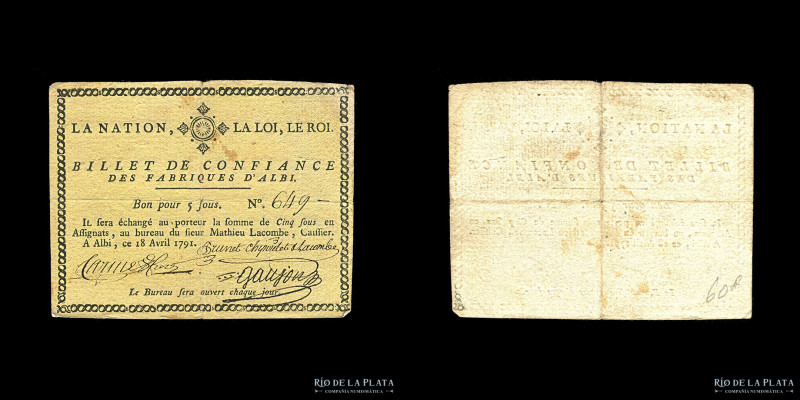 LA NATION, LA LOI, LE ROI.
BILLET DE CONFIANCE
DES FABRIQUES D'ALBI.
Bon pour 5 sous. N°. 649
Il sera échangé au porteur la somme de Cinq sous en
Assignats, au bureau du sieur Mathieu Lacombe, Caissier.
A Albi, ce 18 Avril 1791. Brunet
gaujou
Le Bureau sera ouvert chaque jour.
60
RÍO DE LA PLATA
COMPAÑÍA NUMISMÁTICA
RÍO DE LA PLATA
COMPAÑÍA NUMISMÁTICA